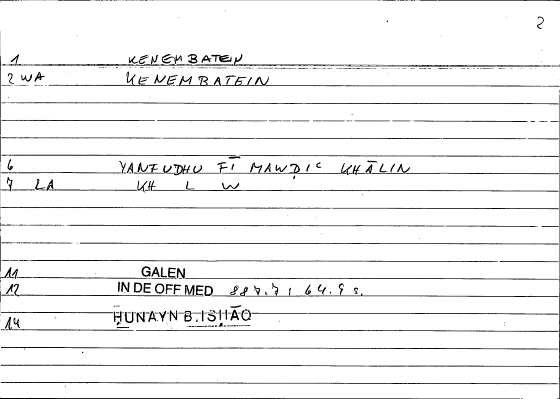 2
1 KENEMBATEIN
2 WA KENEMBATEIN
6 YANFUDHU FĪ MAWḌIʿ KHĀLIN
7 LA KH L W
11 GALEN
12 IN DE OFF MED
14 ḤUNAYN B. ISḤĀQ